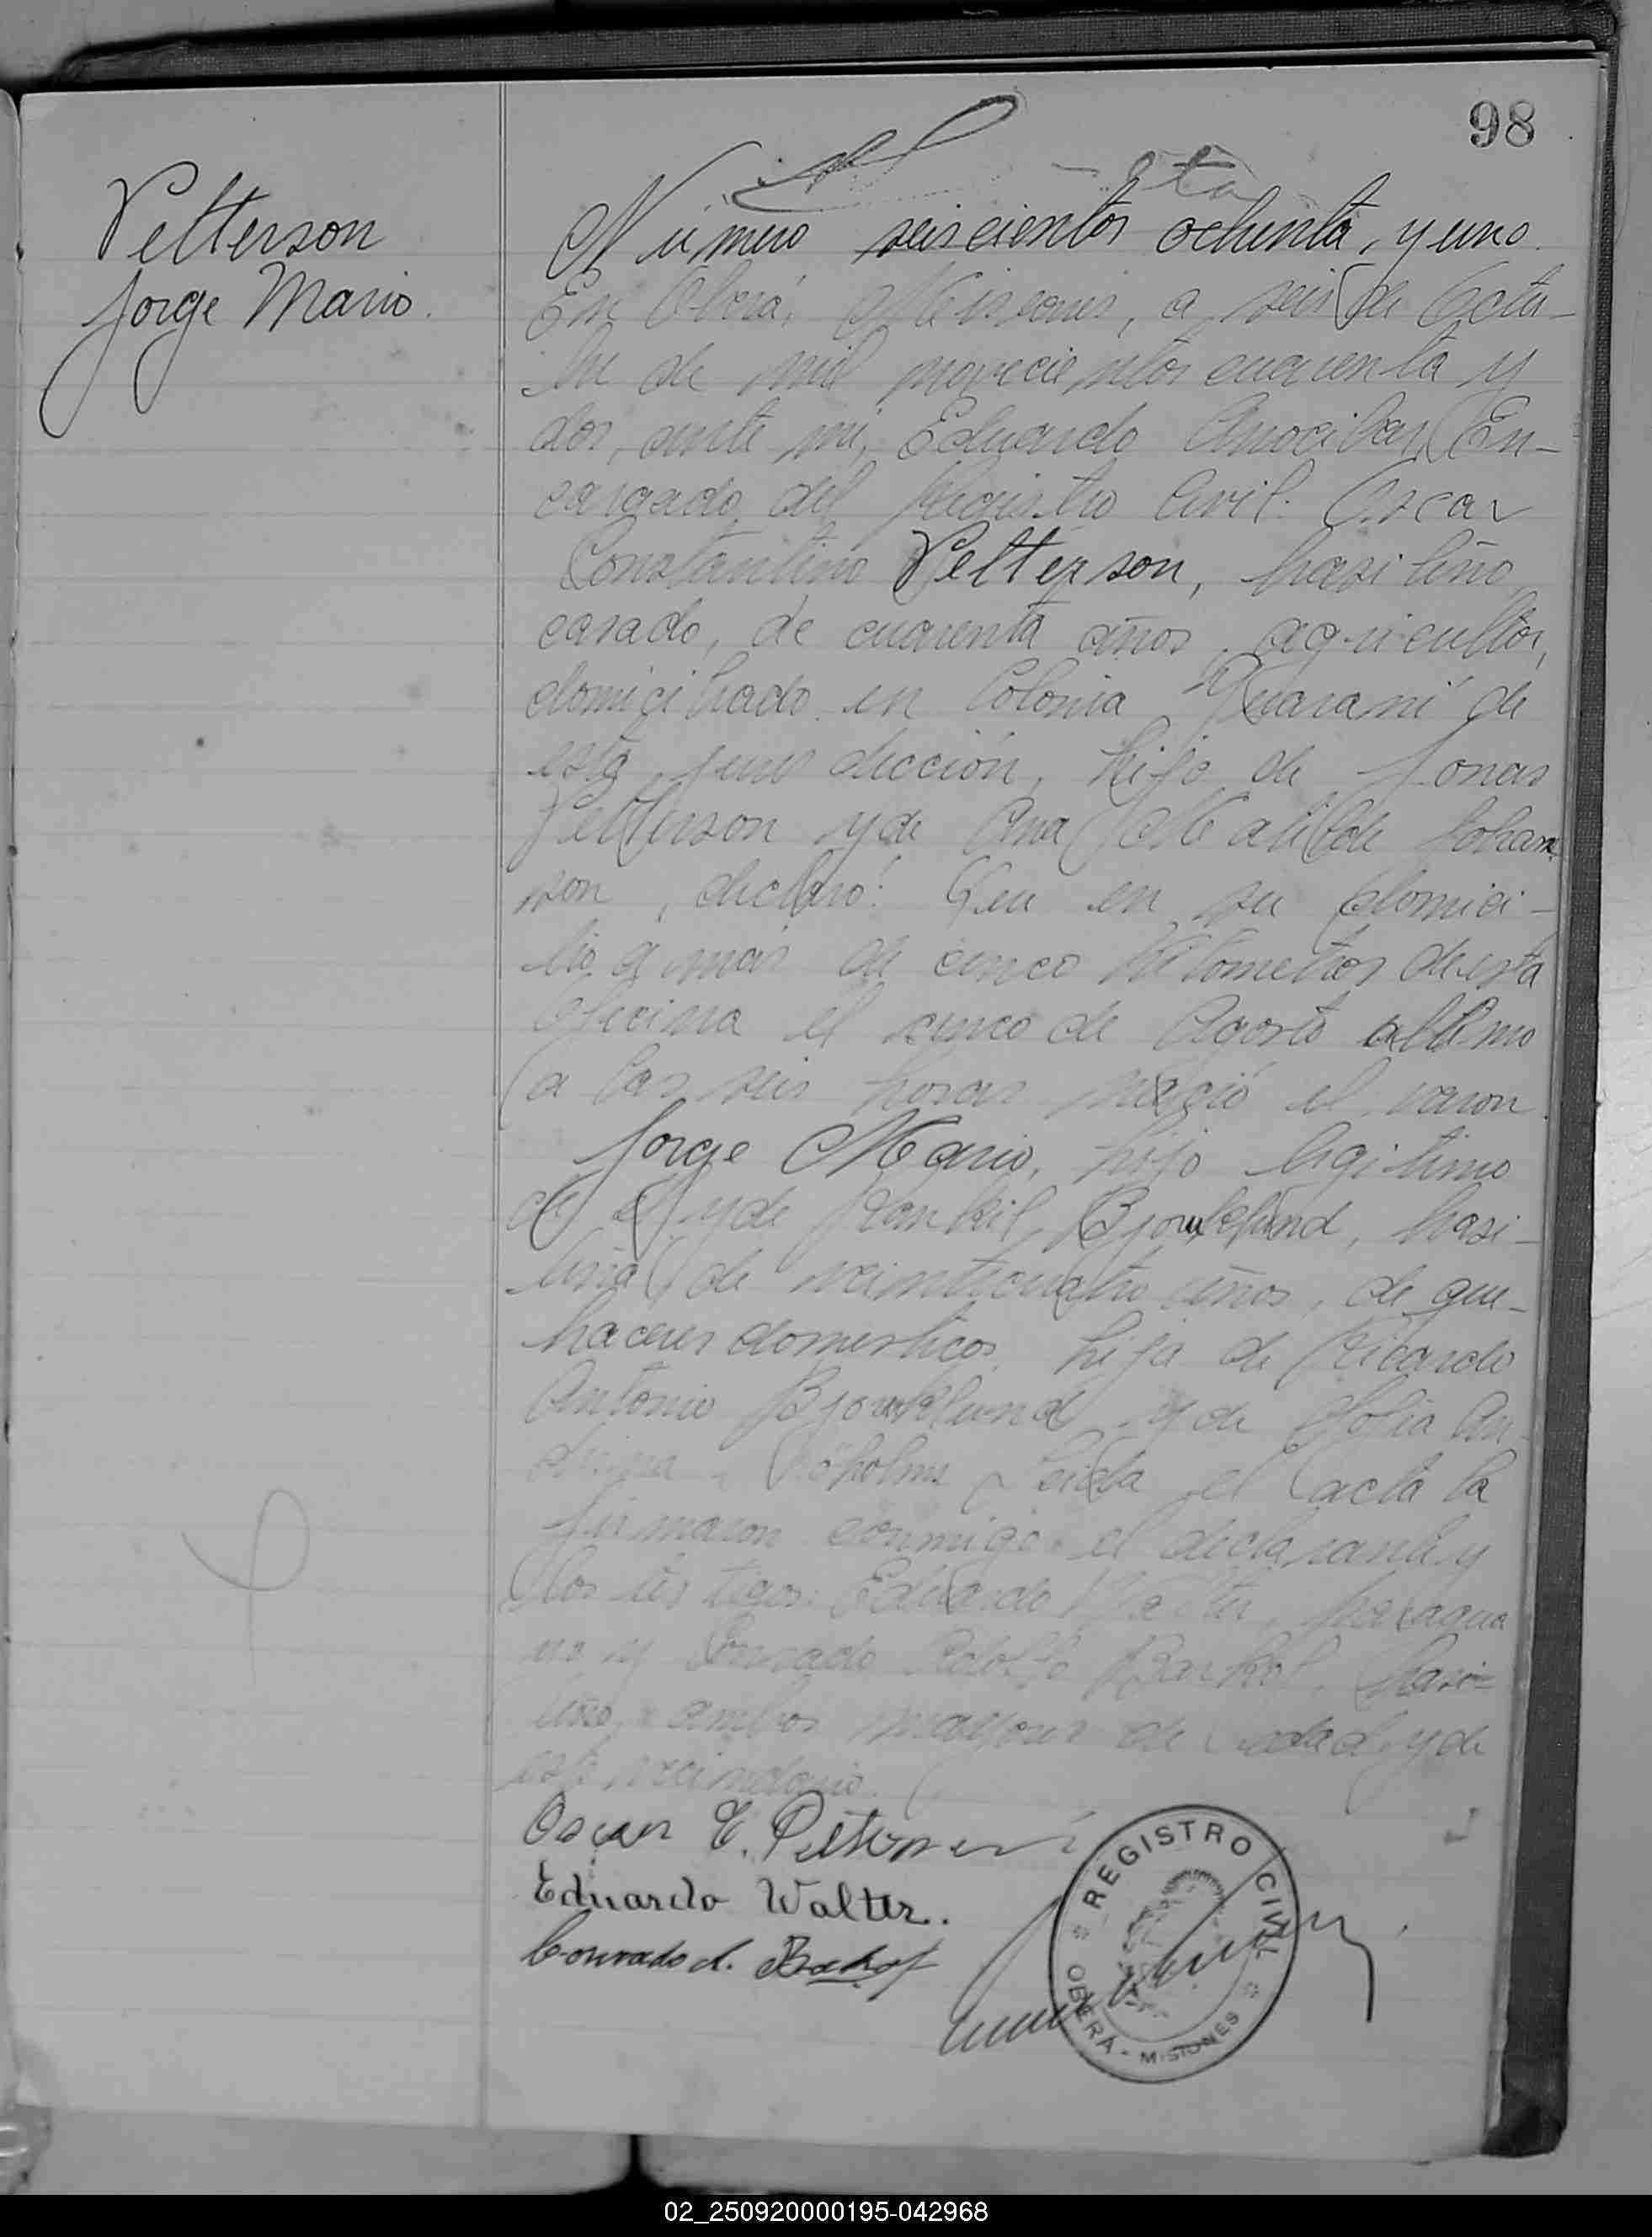 98
Petterson
Jorge Mario.
Número seiscientos ochenta, y uno.
En Oberá, Misiones, a seis de Octu-
bre de mil novecientos cuarenta y
dos, ante mi, Eduardo Amocibar, En-
cargado del Registro Civil: Oscar
Constantino Petterson, brasileño
casado, de cuarenta años, agricultor,
domiciliado en Colonia Guaraní de
esta jurisdicción, hijo de Jonas
Petterson y de Ana Matilde Johan
son, declaró: Que en su domici-
lio, a mas de cinco kilometros de esta
Oficina el cinco de Agosto último
a las seis horas nació el varon
Jorge Mario, hijo legitimo
de el y de Bjourklund, brasi-
leña de veinticuatro años, de que-
haceres domesticos, hija de Ricardo
Antonio Bjourklund y de Sofia
Leida el acta la
firmaron conmigo el declarante y
los testigos: Eduardo Walter, paragua
yo y Conrado Adolfo Barhof, brasi-
leño, ambos mayores de edad y de
este vecindario.
Oscar C. Petterson
Eduardo Walter.
Conrado A.
REGISTRO CIVIL
OBERÁ - MISIONES
02_250920000195-042968